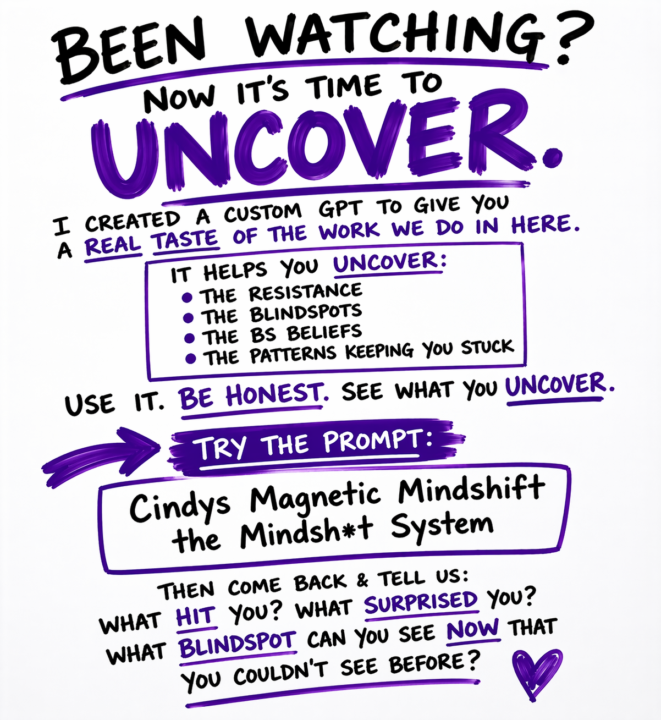 BEEN WATCHING?
NOW IT'S TIME TO
UNCOVER.
I CREATED A CUSTOM GPT TO GIVE YOU
A REAL TASTE OF THE WORK WE DO IN HERE.
IT HELPS YOU UNCOVER:
• THE RESISTANCE
• THE BLINDSPOTS
• THE BS BELIEFS
• THE PATTERNS KEEPING YOU STUCK
USE IT. BE HONEST. SEE WHAT YOU UNCOVER.
TRY THE PROMPT:
Cindys Magnetic Mindshift
the Mindsh*t System
THEN COME BACK & TELL US:
WHAT HIT YOU? WHAT SURPRISED YOU?
WHAT BLINDSPOT CAN YOU SEE NOW THAT
YOU COULDN'T SEE BEFORE?